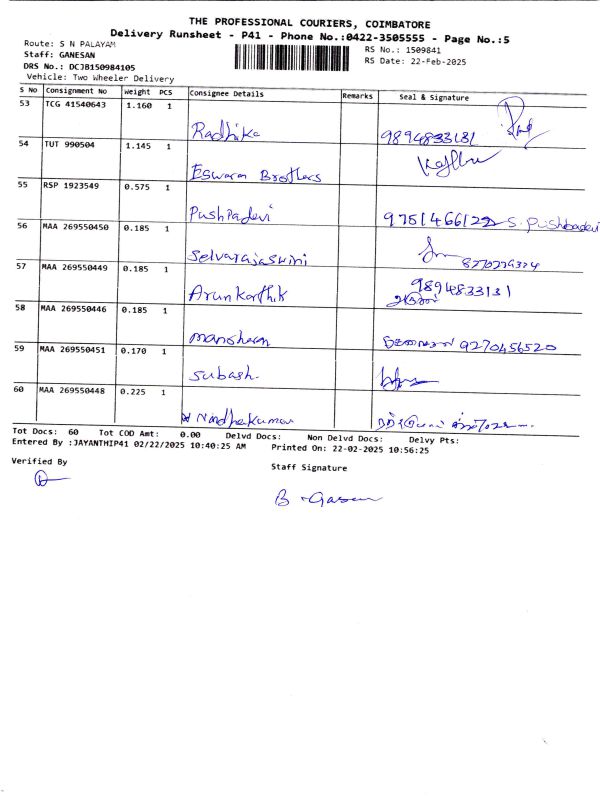 THE PROFESSIONAL COURIERS, COIMBATORE
Delivery Runsheet - P41 - Phone No.:0422-3505555 - Page No.:5
Route: S N PALAYAM
RS No.: 1509841
Staff: GANESAN
RS Date: 22-Feb-2025
DRS No.: DCJB150984105
Vehicle: Two Wheeler Delivery
S No Consignment No Weight PCS Consignee Details Remarks Seal & Signature
53 TCG 41540643 1.160 1
Radhika 9894833131
54 TUT 990504 1.145 1
Eswaran Brothers
55 RSP 1923549 0.575 1
Pushpadevi 9751466122 S. Pushbadevi
56 MAA 269550450 0.185 1
Selvarajaswini
57 MAA 269550449 0.185 1
Arunkarthik 9894833131
58 MAA 269550446 0.185 1
9270456520
59 MAA 269550451 0.170 1
Subash.
60 MAA 269550448 0.225 1
Nandhakumar
Tot Docs: 60 Tot COD Amt: 0.00 Delvd Docs: Non Delvd Docs: Delvy Pts:
Entered By :JAYANTHIP41 02/22/2025 10:40:25 AM Printed On: 22-02-2025 10:56:25
Verified By
Staff Signature